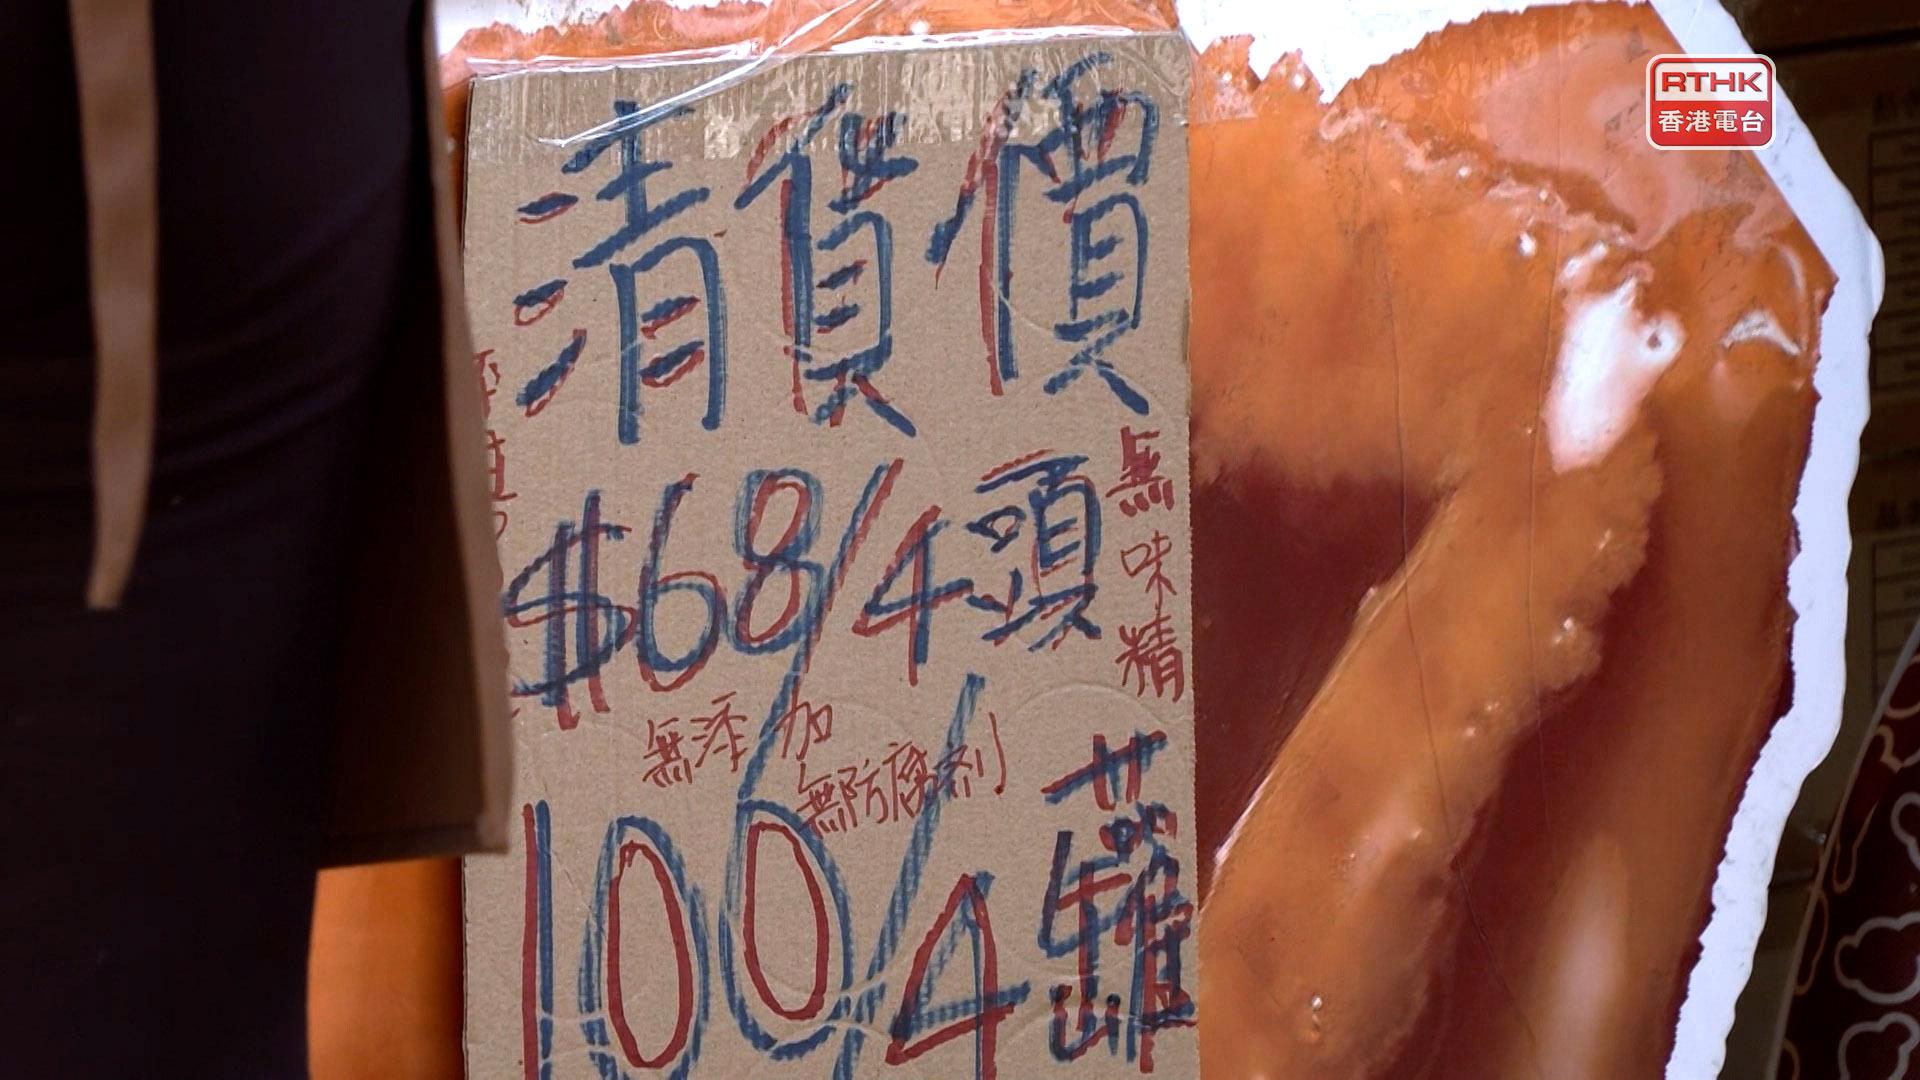 RTHK
香港電台
清貨價
$68/4頭
無味精
無添加
無防腐剂
100/4罐